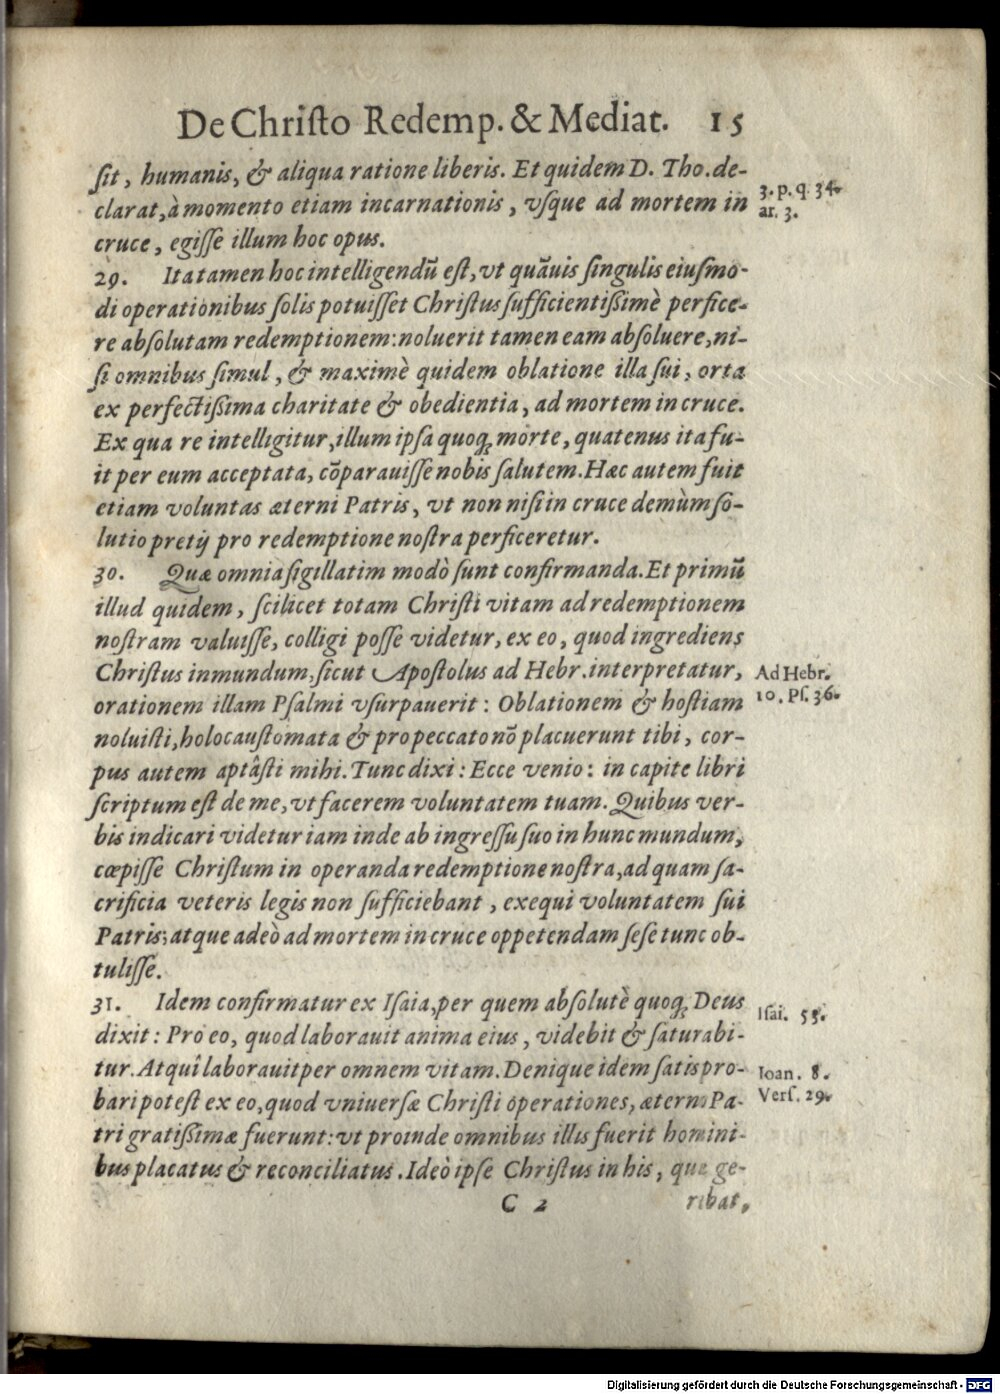 De Christo Redemp. & Mediat. 15
ſit, humanis, & aliqua ratione liberis. Et quidem D. Tho. de-
clarat, à momento etiam incarnationis, vſque ad mortem in
cruce, egiſſe illum hoc opus.
3. p. q. 34.
ar. 3.
29. Ita tamen hoc intelligendũ eſt, vt quãuis ſingulis eiuſmo-
di operationibus ſolis potuiſſet Chriſtus ſufficientißimè perfice-
re abſolutam redemptionem: noluerit tamen eam abſoluere, ni-
ſi omnibus ſimul, & maximè quidem oblatione illa ſui, orta
ex perfectißima charitate & obedientia, ad mortem in cruce.
Ex qua re intelligitur, illum ipſa quoq; morte, quatenus ita fu-
it per eum acceptata, cõparauiſſe nobis ſalutem. Hæc autem fuit
etiam voluntas æterni Patris, vt non niſi in cruce demùm ſo-
lutio pretij pro redemptione noſtra perficeretur.
30. Quæ omnia ſigillatim modò ſunt confirmanda. Et primũ
illud quidem, ſcilicet totam Chriſti vitam ad redemptionem
noſtram valuiſſe, colligi poſſe videtur, ex eo, quod ingrediens
Chriſtus in mundum, ſicut Apoſtolus ad Hebr. interpretatur,
orationem illam Pſalmi vſurpauerit: Oblationem & hoſtiam
noluiſti, holocauſtomata & pro peccato nõ placuerunt tibi, cor-
pus autem aptâſti mihi. Tunc dixi: Ecce venio: in capite libri
ſcriptum eſt de me, vt facerem voluntatem tuam. Quibus ver-
bis indicari videtur iam inde ab ingreſſu ſuo in hunc mundum,
cœpiſſe Chriſtum in operanda redemptione noſtra, ad quam ſa-
crificia veteris legis non ſufficiebant, exequi voluntatem ſui
Patris; atque adeò ad mortem in cruce oppetendam ſeſe tunc ob-
tuliſſe.
Ad Hebr.
10. Pſ. 36.
31. Idem confirmatur ex Iſaia, per quem abſolutè quoq; Deus
dixit: Pro eo, quod laborauit anima eius, videbit & ſaturabi-
tur. Atquî laborauit per omnem vitam. Denique idem ſatis pro-
bari poteſt ex eo, quod vniuerſæ Chriſti operationes, æterno Pa-
tri gratißimæ fuerunt: vt proinde omnibus illis fuerit homini-
bus placatus & reconciliatus. Ideò ipſe Chriſtus in his, quæ ge-
Iſai. 53.
Ioan. 8.
Verſ. 29.
C 2 ribat,
Digitalisierung gefördert durch die Deutsche Forschungsgemeinschaft - DFG